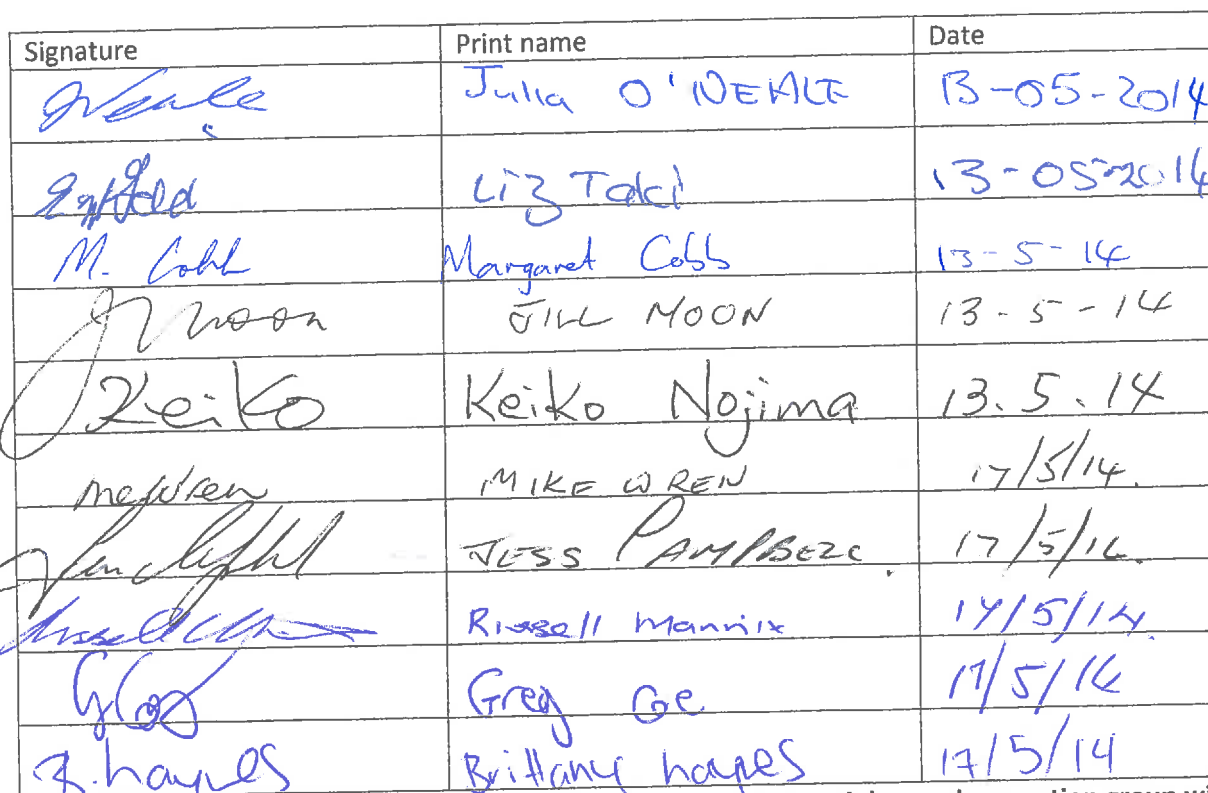 Signature Print name Date
Julia O'NEALE 13-05-2014
Liz Taki 13-05-2014
M. Cobb Margaret Cobb 13-5-14
J Moon JILL MOON 13-5-14
Keiko Keiko Nojima 13.5.14
MIKE WREN 17/5/14.
JESS 17/5/14.
Russell Mannix 17/5/14.
Greg Coe 17/5/14
B. hayes Brittany hayes 17/5/14